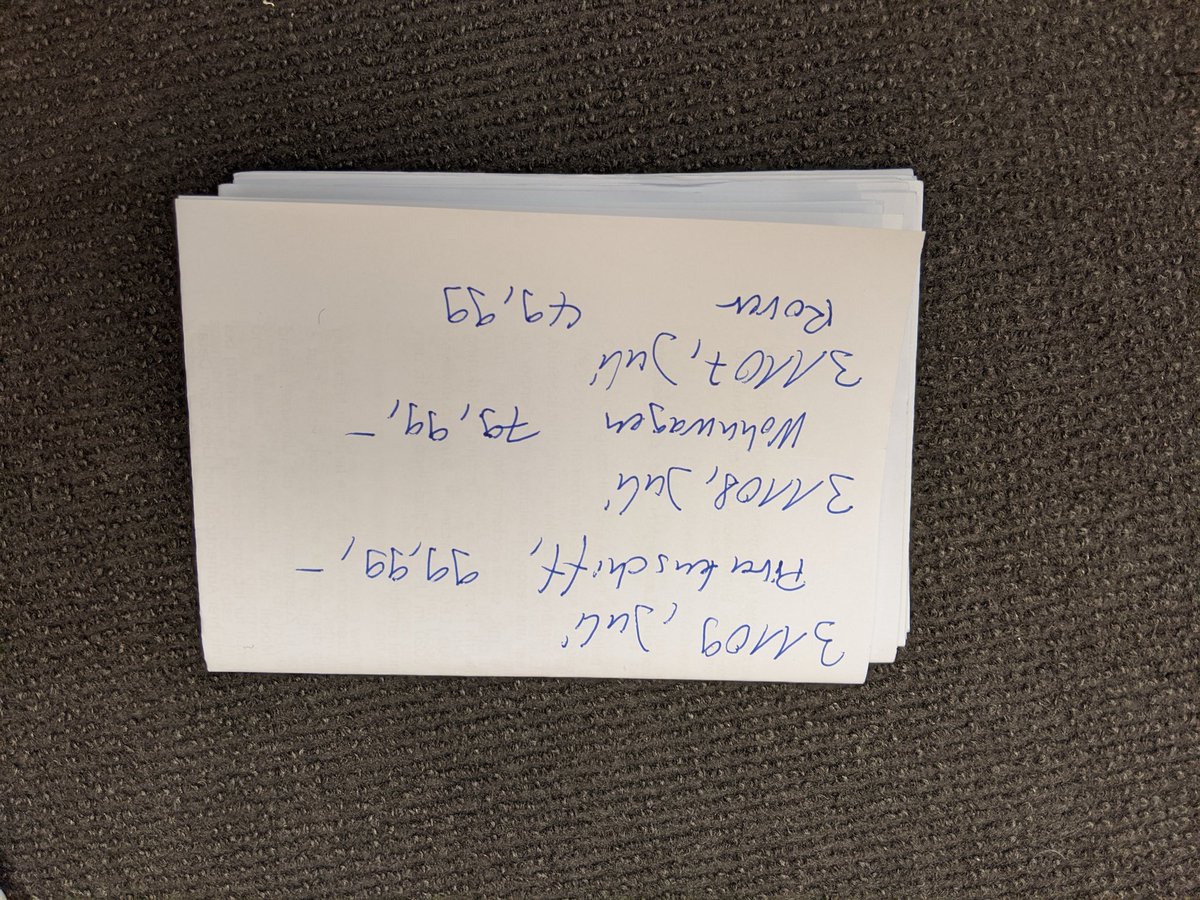 31109, Juli
Piratenschiff, 99,99,–
31108, Juli
Wohnwagen 79,99,–
31107, Juli
Rover 49,99